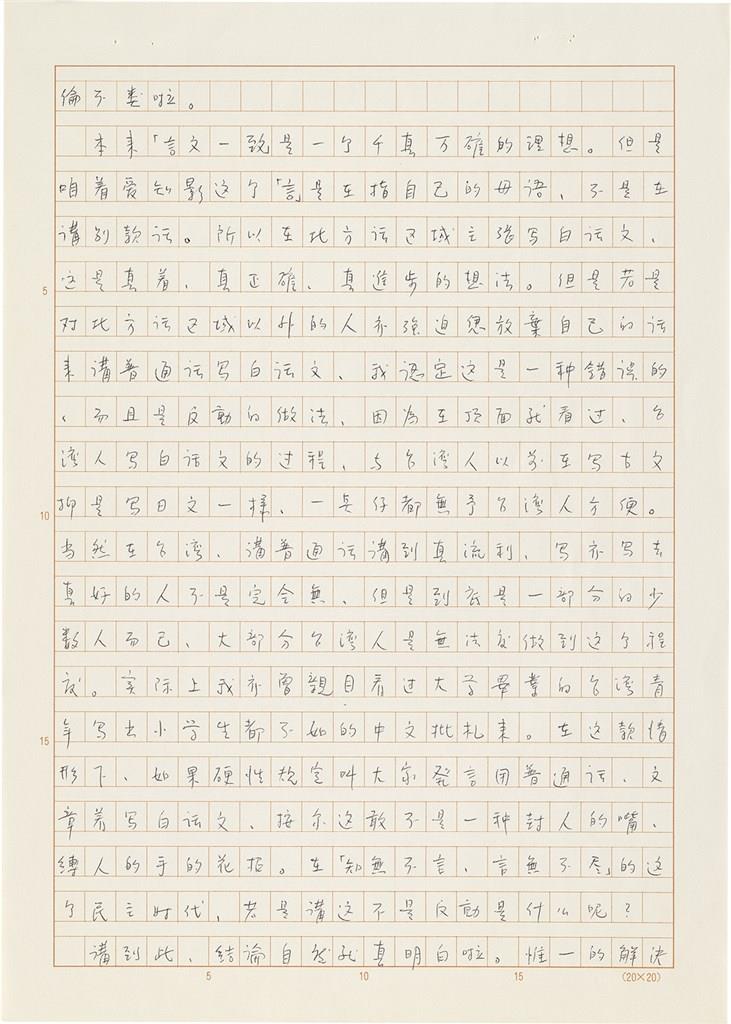 倫不类啦。
本来「言文一致是一个千真万確的理想。但是
咱着爱知影这个「言」是在指自己的母语、不是在
講別款话。所以在北方话区域主張写白话文、
这是真着、真正確、真進步的想法。但是若是
5
对北方话区域以外的人亦強迫您放棄自己的话
来講普通话写白话文、我認定这是一种錯誤的
、而且是反動的做法、因為在顶面就看过、台
湾人写白话文的过程、与台湾人以前在写古文
抑是写日文一樣、一点仔都無予台湾人方便。
10
当然在台湾、講普通话講到真流利、写亦写去
真好的人不是完全無、但是到底是一部分的少
数人而已、大部分台湾人是無法度做到这个程
度。实际上我亦曾親目看过大学畢業的台湾青
年写出小学生都不如的中文批札来。在这款情
15
形下、如果硬性規定叫大家発言用普通话、文
章着写白话文、按尔这敢不是一种封人的嘴、
縛人的手的花招。在「知無不言、言無不尽」的这
个民主时代、若是講这不是反動是什么呢？
講到此、結論自然就真明白啦。惟一的解決
5 10 15 (20×20)